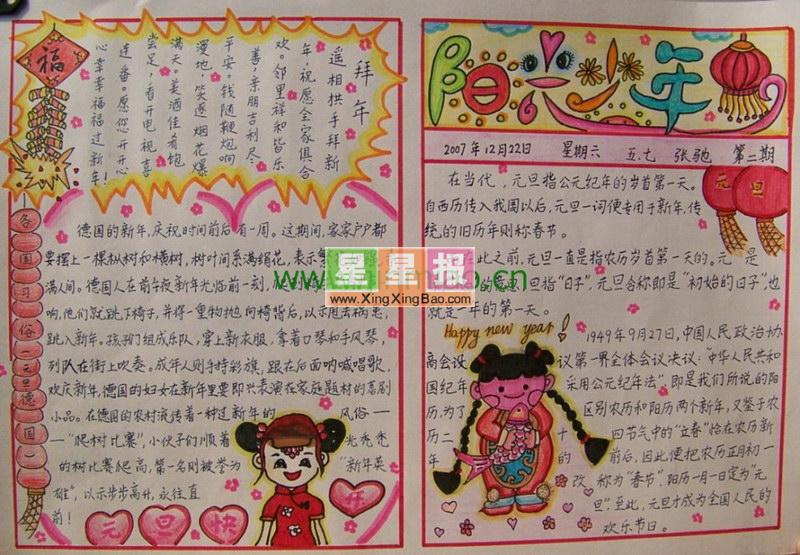 福
拜年
遥相拱手拜新
年，祝愿全家俱合
欢。邻里祥和皆乐
善，亲朋吉利尽
平安。钱随鞭炮响
漫地，笑逐烟花爆
满天。美酒佳肴饱
尝足，看开电视喜
连番。愿您心开开
心幸幸福福过新年！
各国习俗—元旦（德国）
德国的新年，庆祝时间前后有一周。这期间，家家户户都
要摆上一棵枞树和横树，树叶间系满绢花，表示繁
满人间。德国人在前年夜新年光临前一刻，
响，他们就跳下椅子，并将一重物抛向椅背后，以示甩去祸患，
跳入新年。孩子们组成乐队，穿上新衣服，拿着口琴和手风琴，
列队在街上吹奏。成年人则手持彩旗，跟在后面呐喊唱歌，
欢庆新年，德国的妇女在新年里要即兴表演在家庭题材的喜剧
小品。在德国的农村流传着一种过新年的风俗一
一“爬树比赛”，小伙子们顺着光秃秃
的树比赛爬高，第一名则被誉为“新年英
雄”，以示步步高升，永往直
前！
元旦快乐
阳光少年
2007年12月22日 星期六 五.七 张驰 第二期
元旦
在当代，元旦指公元纪年的岁首第一天。
自西历传入我国以后，元旦一词便专用于新年，传
统的旧历年则称春节。
在此之前，元旦一直是指农历岁首第一天的。元是
旦指“日子”，元旦合称即是“初始的日子”，也
就是一年的第一天。
Happy new year!
1949年9月27日，中国人民政治协
商会议第一界全体会议决议：“中华人民共和
国纪年采用公元纪年法”，即是我们所说的阳
历，为了区别农历和阳历两个新年，又鉴于农
历二十四节气中的“立春”恰在农历新
年的前后，因此便把农历正月初一
改称为“春节”，阳历一月一日定为“元
旦”，至此，元旦才成为全国人民的
欢乐节日。
星星报
www.XingXingBao.com